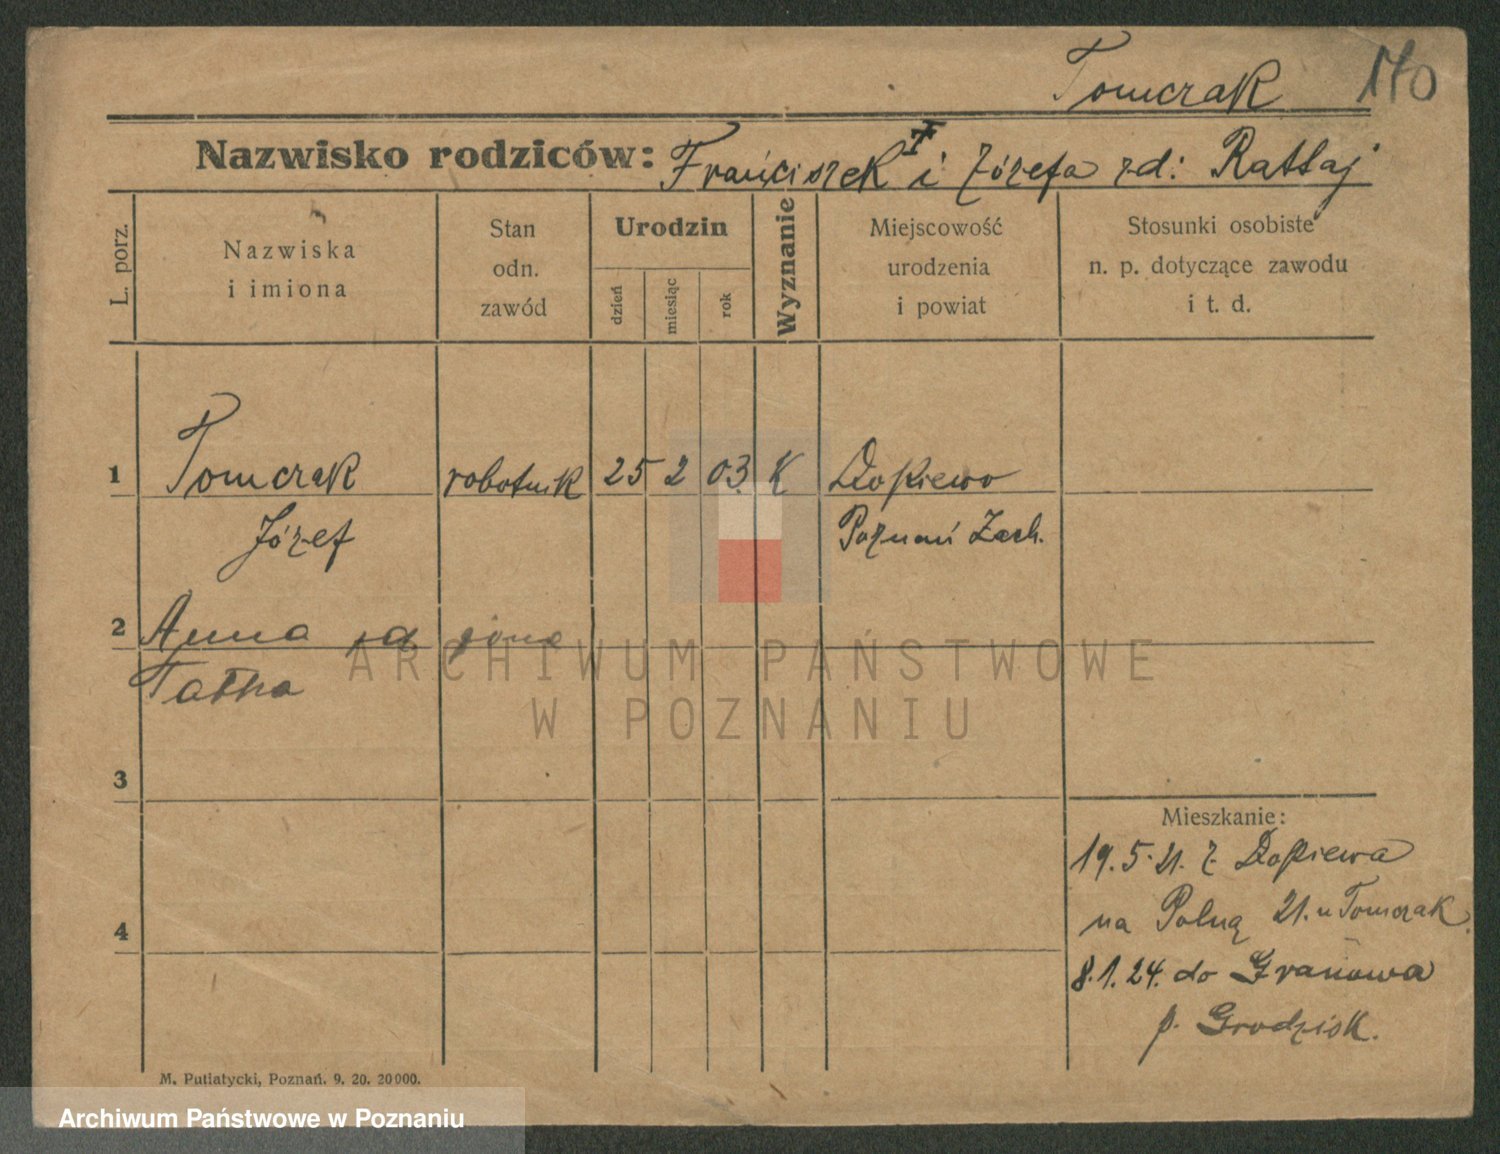 Tomczak 170
Nazwisko rodziców: Franciszek i Józefa zd: Rattaj
L. porz.
Nazwiska
i imiona
Stan
odn.
zawód
Urodzin
dzień
miesiąc
rok
Wyznanie
Miejscowość
urodzenia
i powiat
Stosunki osobiste
n. p. dotyczące zawodu
i t. d.
1 Tomczak robotnik 25 2 03. K Dopiewo
Józef Poznań Zach.
2 Anna żona
3
4
Mieszkanie:
19.5.21. z Dopiewa
na Polną 21. u Tomczak.
8.1.24. do Granowa
p. Grodzisk.
M. Putiatycki, Poznań. 9. 20. 20000.
ARCHIWUM PAŃSTWOWE
W POZNANIU
Archiwum Państwowe w Poznaniu